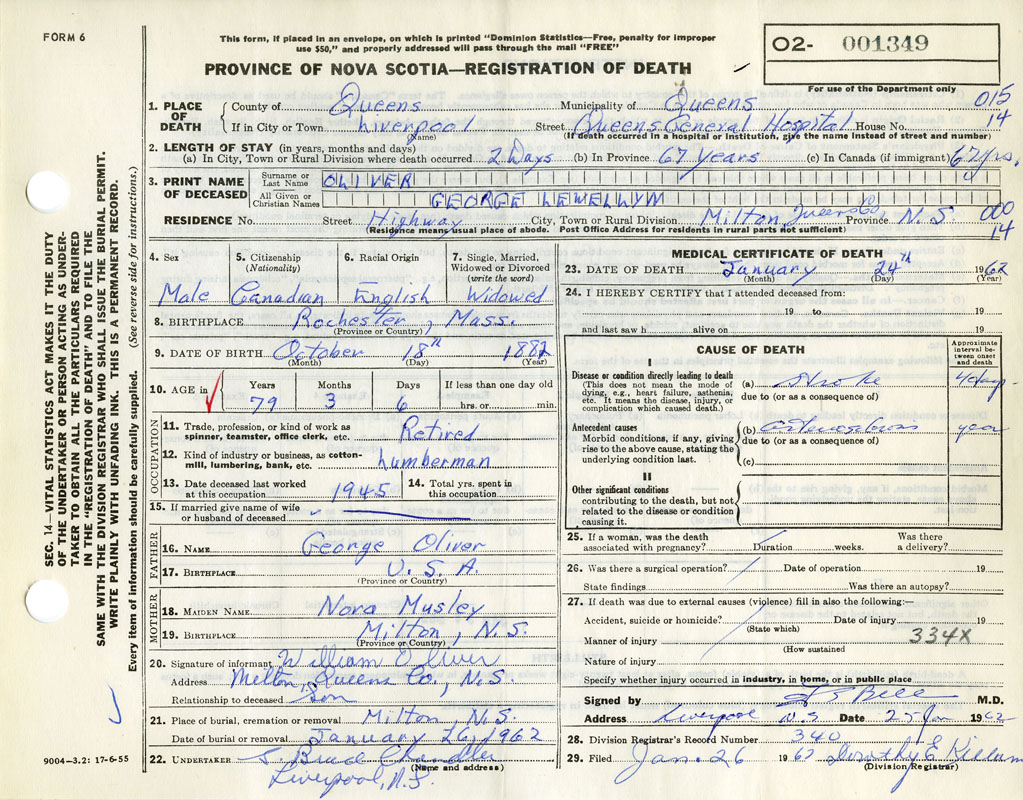 FORM 6
This form, if placed in an envelope, on which is printed "Dominion Statistics—Free, penalty for improper
use $50," and properly addressed will pass through the mail "FREE"
O2- 001349
PROVINCE OF NOVA SCOTIA—REGISTRATION OF DEATH
For use of the Department only
SEC. 14—VITAL STATISTICS ACT MAKES IT THE DUTY
OF THE UNDERTAKER OR PERSON ACTING AS UNDER-
TAKER TO OBTAIN ALL THE PARTICULARS REQUIRED
IN THE "REGISTRATION OF DEATH" AND TO FILE THE
SAME WITH THE DIVISION REGISTRAR WHO SHALL ISSUE THE BURIAL PERMIT.
WRITE PLAINLY WITH UNFADING INK. THIS IS A PERMANENT RECORD.
Every item of information should be carefully supplied. (See reverse side for instructions.)
1. PLACE OF DEATH
County of Queens Municipality of Queens 015
If in City or Town Liverpool Street Queens General Hospital House No. 14
(Name) (If death occurred in a hospital or institution, give the name instead of street and number)
2. LENGTH OF STAY (in years, months and days)
(a) In City, Town or Rural Division where death occurred 2 Days (b) In Province 67 years (c) In Canada (if immigrant) 67 yrs.
3. PRINT NAME OF DECEASED
Surname or Last Name OLIVER
All Given or Christian Names GEORGE LEWELLYN
RESIDENCE No. Street Highway City, Town or Rural Division Milton, Queens Co, Province N.S. 000
(Residence means usual place of abode. Post Office Address for residents in rural parts not sufficient) 14
4. Sex 5. Citizenship (Nationality) 6. Racial Origin 7. Single, Married, Widowed or Divorced (write the word)
Male Canadian English Widowed
8. BIRTHPLACE Rochester, Mass.
(Province or Country)
9. DATE OF BIRTH October 18th 1882
(Month) (Day) (Year)
10. AGE in Years Months Days If less than one day old
79 3 6 hrs. or min.
OCCUPATION
11. Trade, profession, or kind of work as spinner, teamster, office clerk, etc. Retired
12. Kind of industry or business, as cotton-mill, lumbering, bank, etc. Lumberman
13. Date deceased last worked at this occupation 1945 14. Total yrs. spent in this occupation
15. If married give name of wife or husband of deceased
FATHER
16. NAME George Oliver
17. BIRTHPLACE U.S.A.
(Province or Country)
MOTHER
18. MAIDEN NAME Nora Musley
19. BIRTHPLACE Milton, N.S.
(Province or Country)
20. Signature of informant William Oliver
Address Milton, Queens Co., N.S.
Relationship to deceased Son
21. Place of burial, cremation or removal Milton, N.S.
Date of burial or removal January 26, 1962
22. UNDERTAKER Brad Chandler
Liverpool, N.S. (Name and address)
9004—3.2: 17-6-55
MEDICAL CERTIFICATE OF DEATH
23. DATE OF DEATH January 24th 1962
(Month) (Day) (Year)
24. I HEREBY CERTIFY that I attended deceased from:
19 to 19
and last saw h alive on 19
CAUSE OF DEATH
Approximate interval between onset and death
I
Disease or condition directly leading to death
(This does not mean the mode of dying, e.g., heart failure, asthenia, etc. It means the disease, injury, or complication which caused death.)
(a) Stroke 4 days
due to (or as a consequence of)
Antecedent causes
Morbid conditions, if any, giving rise to the above cause, stating the underlying condition last.
(b) years
due to (or as a consequence of)
(c)
II
Other significant conditions
contributing to the death, but not related to the disease or condition causing it.
25. If a woman, was the death associated with pregnancy? Duration weeks. Was there a delivery?
26. Was there a surgical operation? Date of operation 19
State findings Was there an autopsy?
27. If death was due to external causes (violence) fill in also the following:—
Accident, suicide or homicide? Date of injury 19
(State which)
Manner of injury 334X
(How sustained
Nature of injury
Specify whether injury occurred in industry, in home, or in public place
Signed by Bell M.D.
Address Liverpool N.S Date 25 Jan 1962
28. Division Registrar's Record Number 340
29. Filed Jan. 26 1962 Dorothy E. Killam
(Division Registrar)